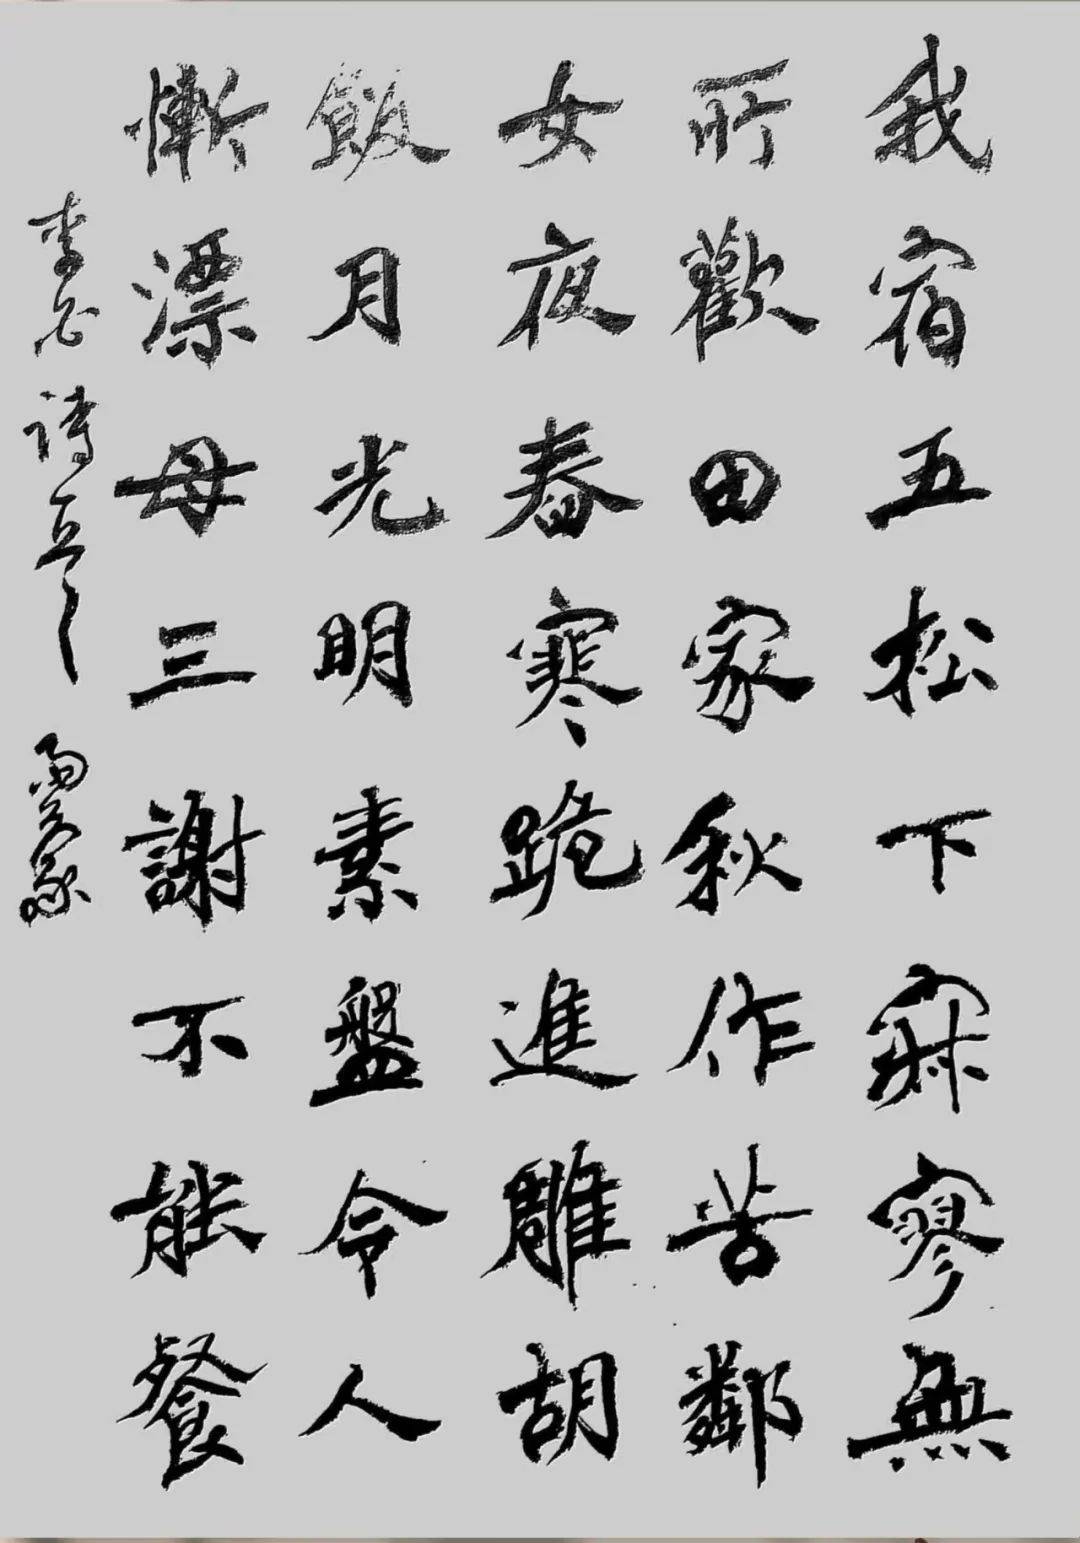 我宿五松下寂寥無
所歡田家秋作苦鄰
女夜舂寒跪進雕胡
飯月光明素盤令人
慚漂母三謝不能餐
李白詩